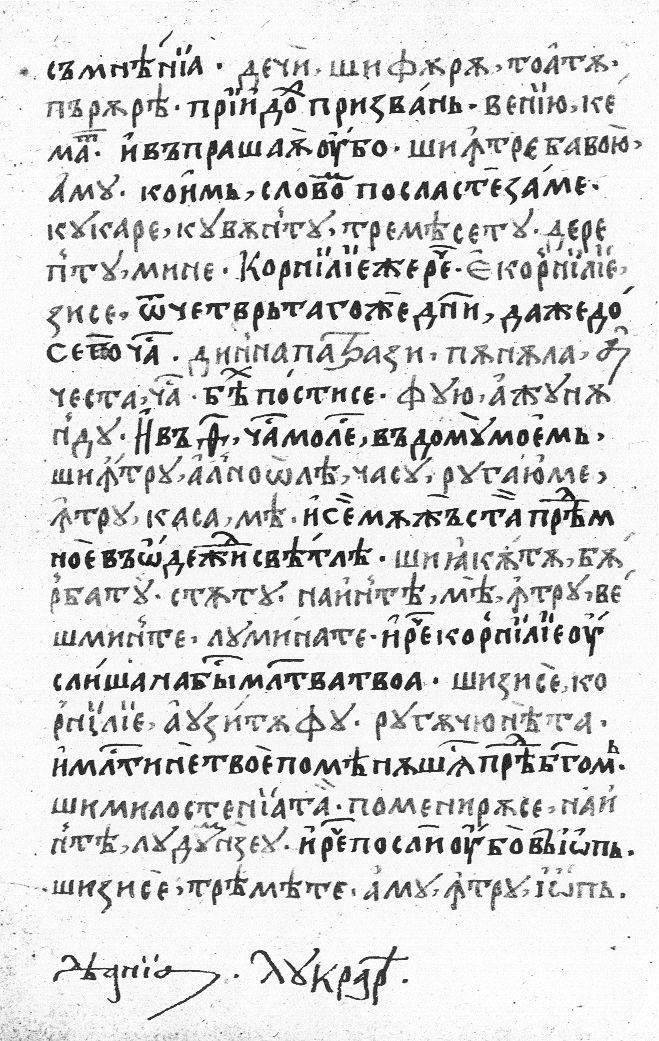 съмнѣнїа · дечи, шифѫрѫ, тоатѫ ·
пърѫрѣ · прїидо призвань · венїю, ке
ма · ивъпрашаѫ оубо · шиѫтребавою,
аму · коимь, словѡ посластезаме ·
кукаре, кувѫнту, тремѣсету · дере
пту, мине · Корнїлїежере · Єкорнїлїе,
зисе, ѿчетврьтагожедни, дажедо
сего ча · динна
честа, ча · бѣ постисе · фую, ажунѫ
нду · Ивъ ѳ, чамоле, въдомумоемь,
шиѫтру, ал ноѡлѣ, часу, ругаюме,
ѫтру, каса, мѣ · исемѫжъста прѣм
ноевъѡдеждисвѣтлѣ · шиꙗкѫтѫ, бѫ
рбату · стѫту · наинтѣ, мѣ, ѫтру, ве
шминте, луминате · ирекорнїлїеоу
слишанабымлтватвоа · шизисе, ко
рнїлїе, аузитѫфу · ругѫчюнѣта ·
имлтинетвоепомѣнѫшѫпрѣбгомь ·
шимилостенїата · поменирѫсе, наи
нтѣ, лудумнѕеу · ирепослиоубовьїѡпь .
шизисе, трѣмѣте · аму, ѫтру, їѡпь .
дѣанїа · лукрар .